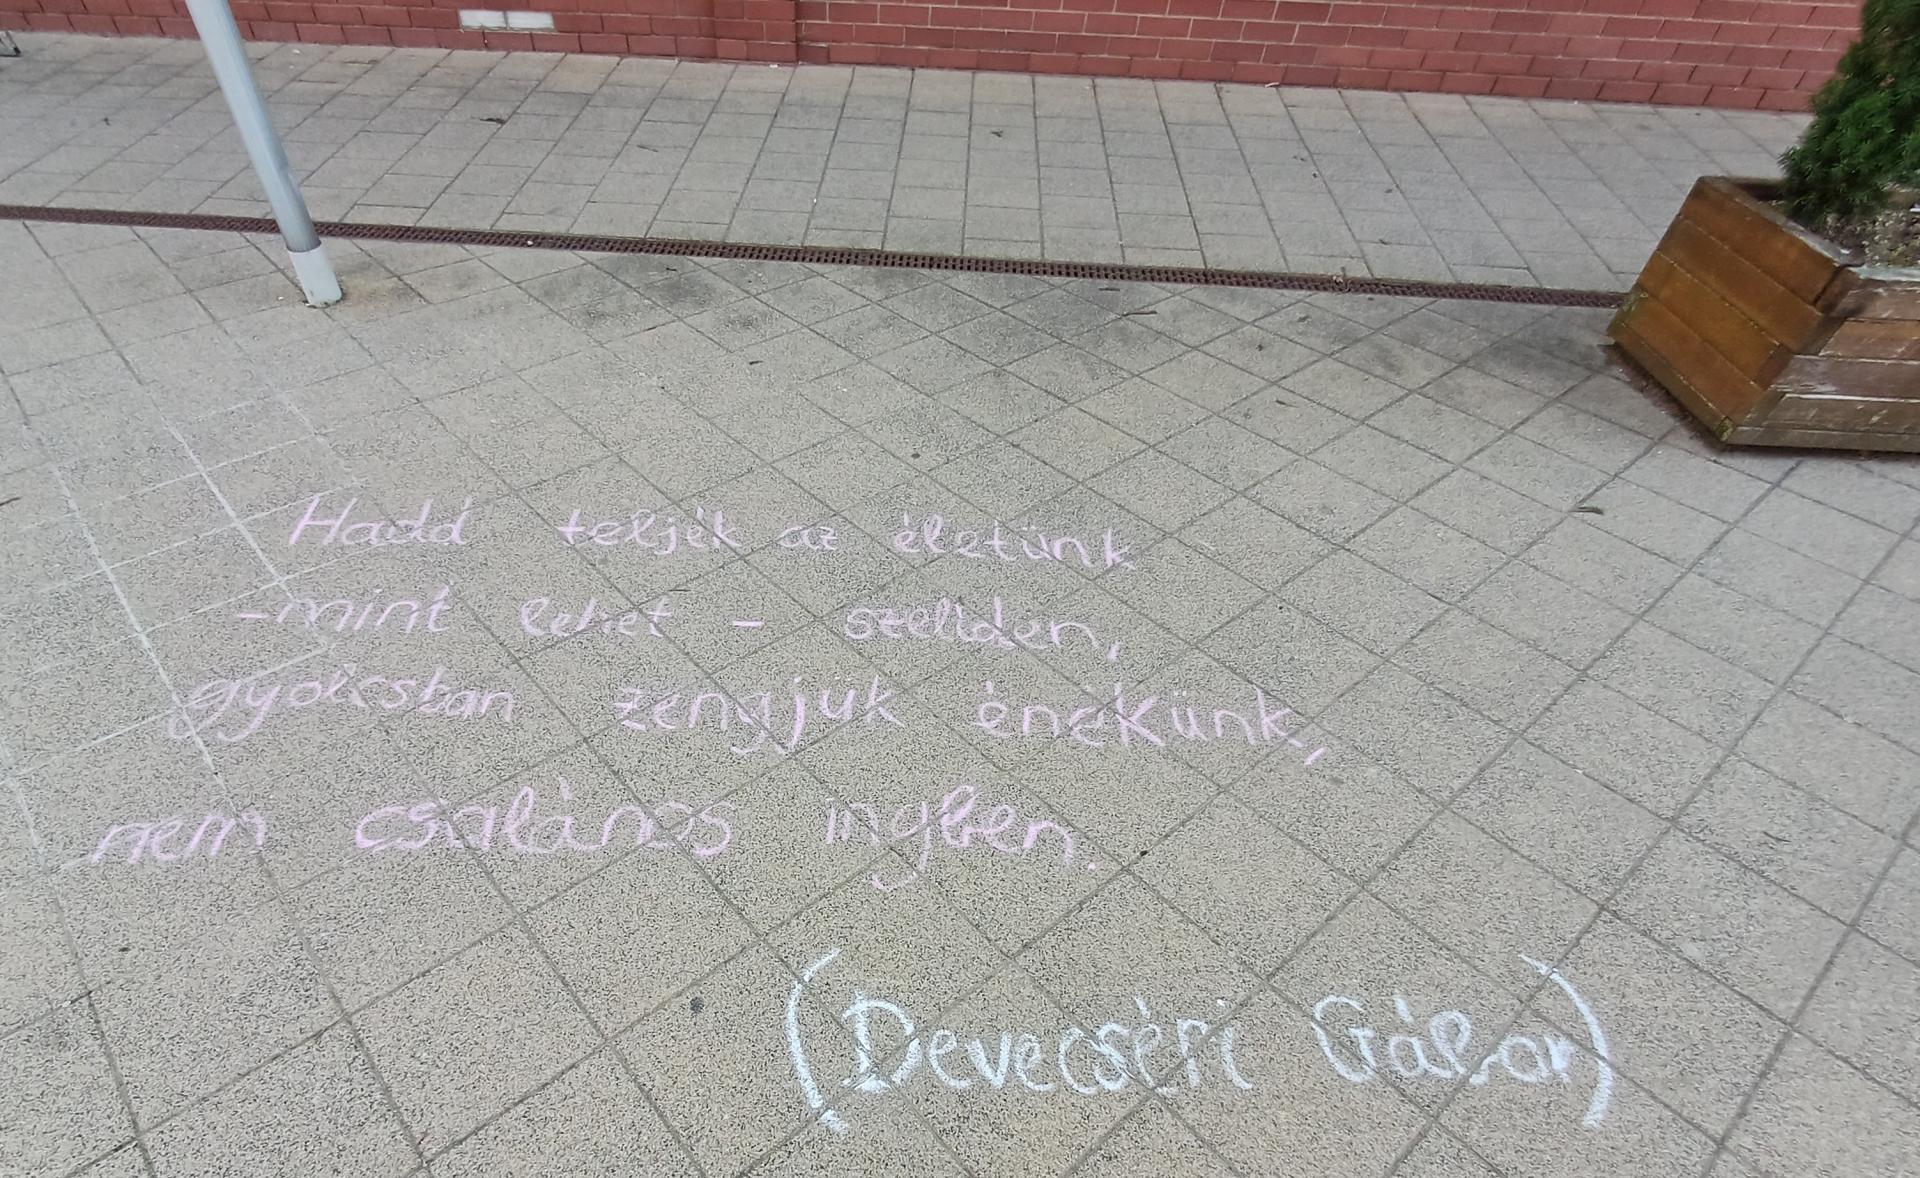 Hadd teljék az életünk
-mint lehet - szelíden,
gyolcsban zengjük énekünk,
nem csalános ingben.
(Devecseri Gábor)